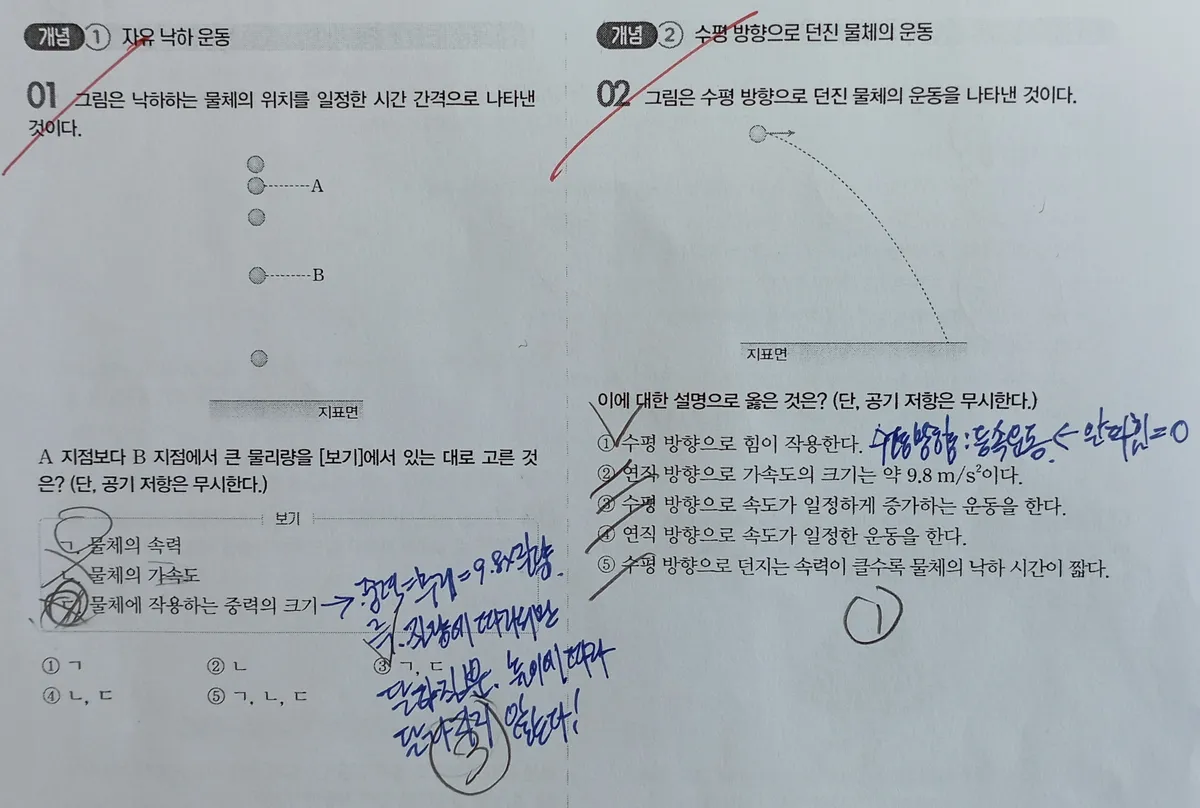 개념 ① 자유 낙하 운동
01 그림은 낙하하는 물체의 위치를 일정한 시간 간격으로 나타낸
것이다.
A
B
지표면
A 지점보다 B 지점에서 큰 물리량을 [보기]에서 있는 대로 고른 것
은? (단, 공기 저항은 무시한다.)
보기
ㄱ. 물체의 속력
ㄴ. 물체의 가속도
ㄷ. 물체에 작용하는 중력의 크기 → 중력=무게=9.8×질량.
즉, 질량에 따라서만
달라질뿐, 높이에 따라
달라지지 않는다!
① ㄱ ② ㄴ ③ ㄱ, ㄷ
④ ㄴ, ㄷ ⑤ ㄱ, ㄴ, ㄷ
3
개념 ② 수평 방향으로 던진 물체의 운동
02 그림은 수평 방향으로 던진 물체의 운동을 나타낸 것이다.
지표면
이에 대한 설명으로 옳은 것은? (단, 공기 저항은 무시한다.)
① 수평 방향으로 힘이 작용한다. 수평방향: 등속운동. ← 알짜힘=0
② 연직 방향으로 가속도의 크기는 약 9.8 m/s²이다.
③ 수평 방향으로 속도가 일정하게 증가하는 운동을 한다.
④ 연직 방향으로 속도가 일정한 운동을 한다.
⑤ 수평 방향으로 던지는 속력이 클수록 물체의 낙하 시간이 짧다.
1